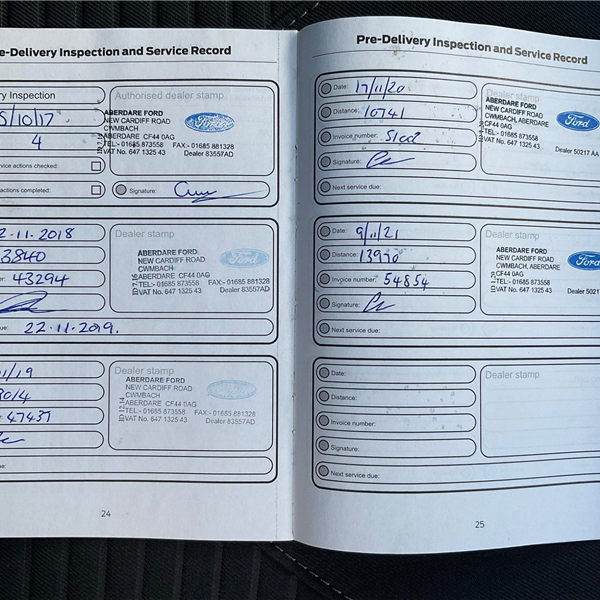 e-Delivery Inspection and Service Record
ry Inspection
Authorised dealer stamp
/10/17
4
ABERDARE FORD
NEW CARDIFF ROAD
CWMBACH
ABERDARE CF44 0AG
TEL:- 01685 873558 FAX:- 01685 881328
VAT No. 647 1325 43 Dealer 83557AD
Ford
rvice actions checked:
actions completed:
Signature:
2.11.2018
3840
43294
Dealer stamp
ABERDARE FORD
NEW CARDIFF ROAD
CWMBACH
ABERDARE CF44 0AG
TEL:- 01685 873558 FAX:- 01685 881328
VAT No. 647 1325 43 Dealer 83557AD
Ford
ue: 22.11.2019.
1/19
014
47437
Dealer stamp
ABERDARE FORD
NEW CARDIFF ROAD
CWMBACH
ABERDARE CF44 0AG
TEL:- 01685 873558 FAX:- 01685 881328
VAT No. 647 1325 43 Dealer 83557AD
ID 12.14
Ford
ue:
24
Pre-Delivery Inspection and Service Record
Date: 17/11/20
Distance: 10741
Invoice number:
Signature:
Next service due:
Dealer stamp
ABERDARE FORD
NEW CARDIFF ROAD
CWMBACH, ABERDARE
CF44 0AG
TEL:- 01685 873558
VAT No. 647 1325 43 Dealer 50217 AA
Ford
Date: 9/11/21
Distance: 13970
Invoice number: 54854
Signature:
Next service due:
Dealer stamp
ABERDARE FORD
NEW CARDIFF ROAD
CWMBACH, ABERDARE
CF44 0AG
TEL:- 01685 873558
VAT No. 647 1325 43 Dealer 50217
Ford
Date:
Distance:
Invoice number:
Signature:
Next service due:
Dealer stamp
25